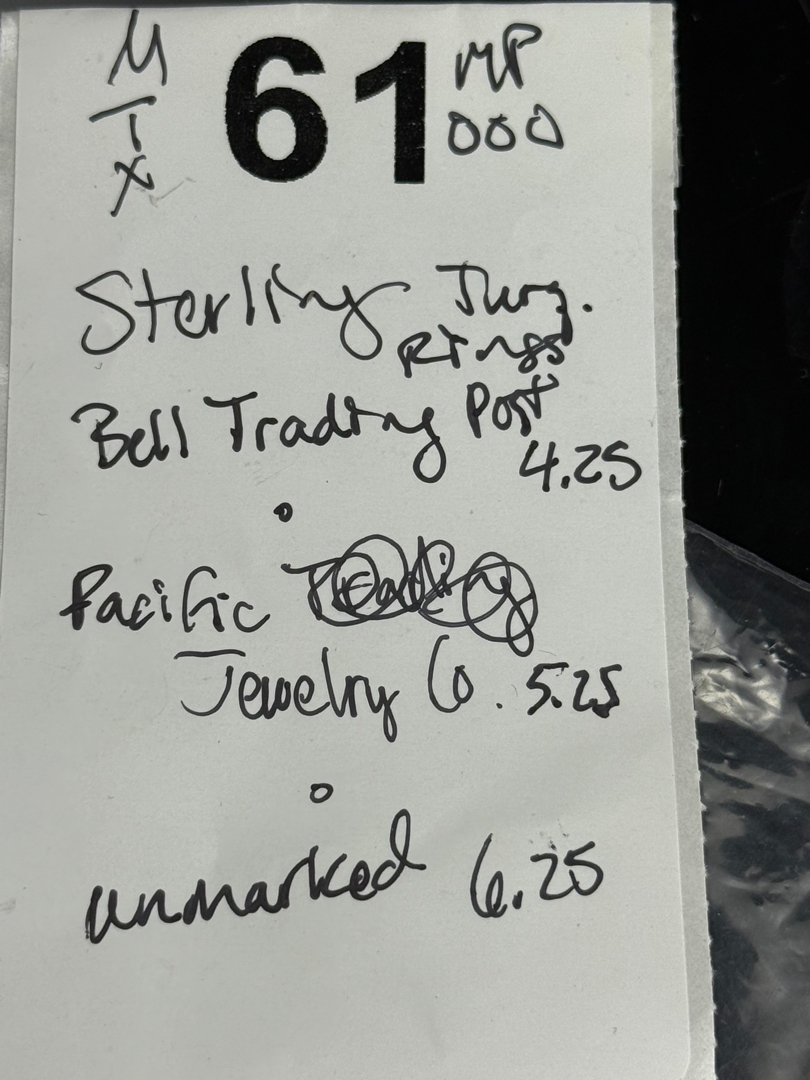 M 61 MP
T 000
X
Sterling Turq.
Rings
Bell Trading Post
4.25
Pacific
Jewelry Co. 5.25
unmarked 6.25